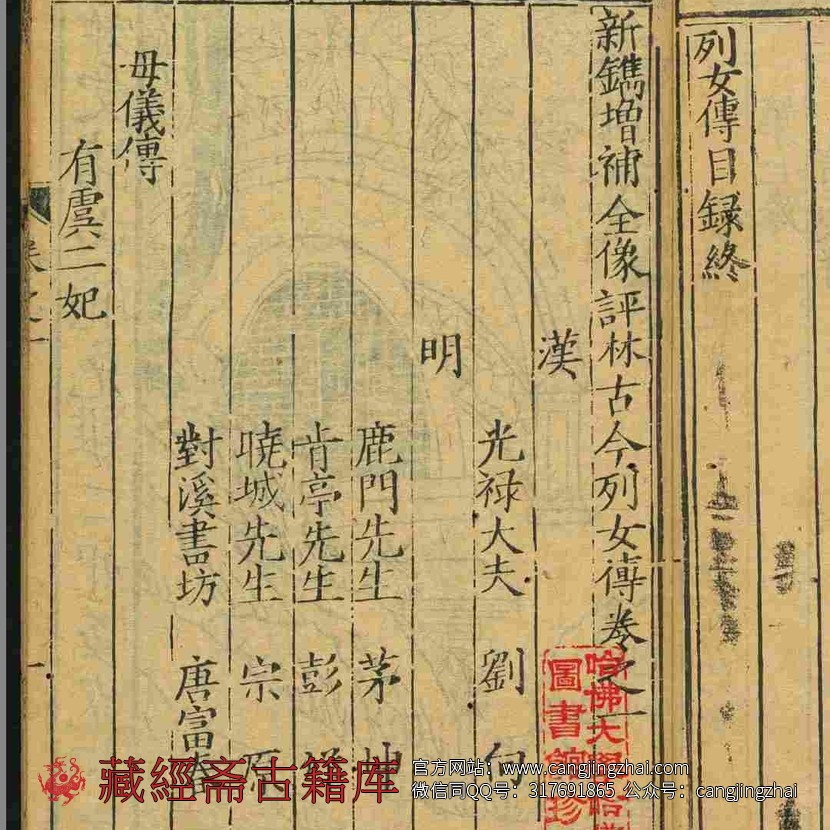 列女傳目録終
新鐫增補全像評林古今列女傳卷之一
漢
光禄大夫 劉向
明
鹿門先生 茅坤
肯亭先生 彭
曉城先生 宗原
對溪書坊 唐富春
母儀傳
有虞二妃
卷之一
一
哈佛大
圖書館珍
藏經斋古籍库
官方网站：www.cangjingzhai.com
微信同QQ号：317691865 公众号：cangjingzhai